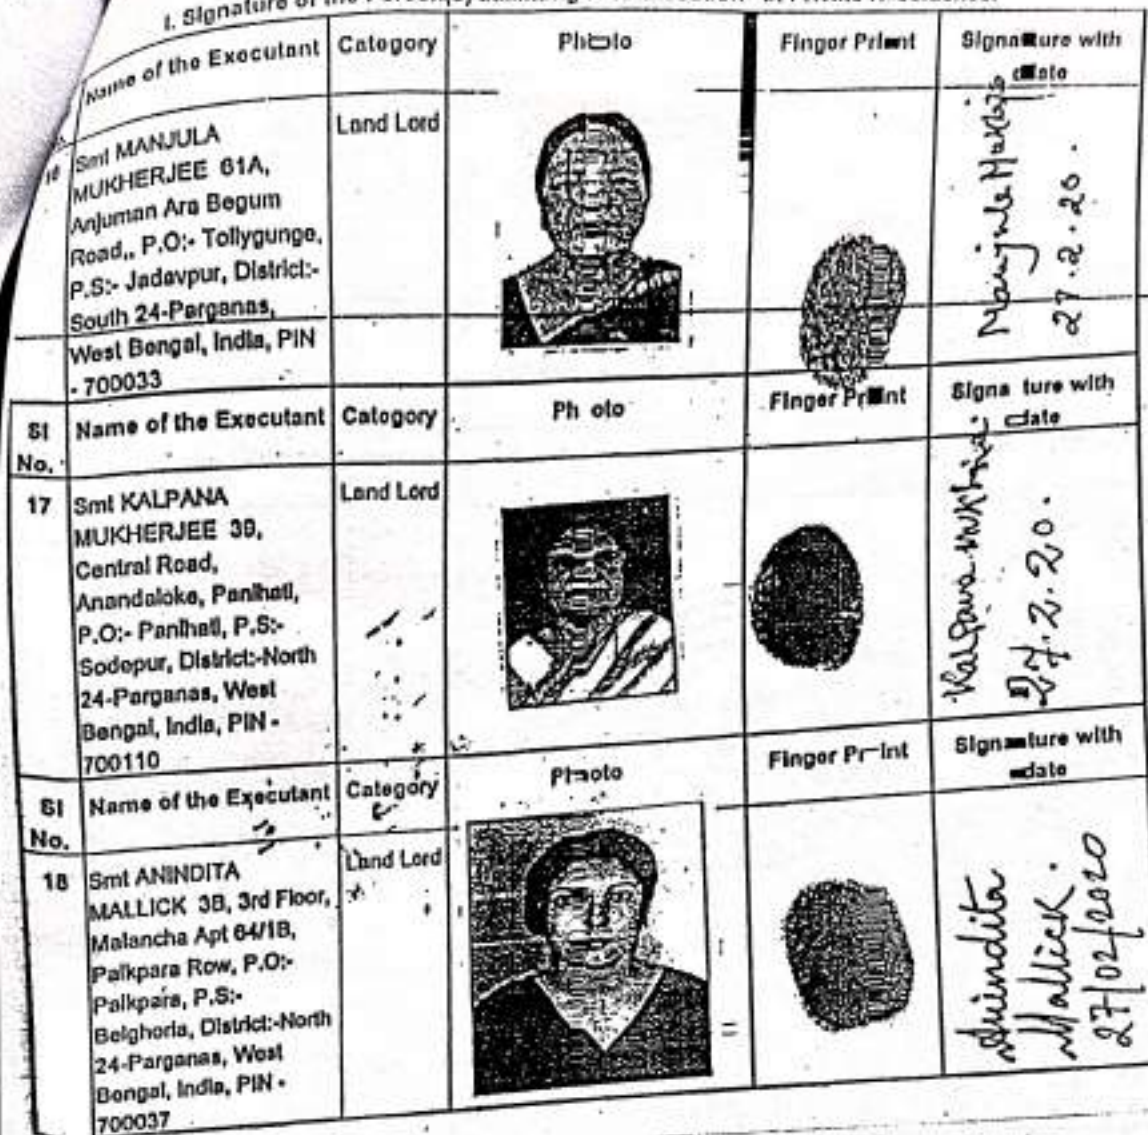 I. Signature of the
Name of the Executant Category Photo Finger Print Signature with
date
16 Smt MANJULA
MUKHERJEE 61A,
Anjuman Ara Begum
Road,, P.O:- Tollygunge,
P.S:- Jadavpur, District:-
South 24-Parganas,
West Bengal, India, PIN
- 700033
Land Lord
Manjula
27.2.20.
Sl
No.
Name of the Executant Category Photo Finger Print Signature with
date
17 Smt KALPANA
MUKHERJEE 39,
Central Road,
Anandaloke, Panihati,
P.O:- Panihati, P.S:-
Sodepur, District:-North
24-Parganas, West
Bengal, India, PIN -
700110
Land Lord
Kalpana
27.2.20.
Sl
No.
Name of the Executant Category Photo Finger Print Signature with
date
18 Smt ANINDITA
MALLICK 3B, 3rd Floor,
Malancha Apt 64/1B,
Paikpara Row, P.O:-
Paikpara, P.S:-
Belghoria, District:-North
24-Parganas, West
Bengal, India, PIN -
700037
Land Lord
Anindita
Mallick.
27/02/2020